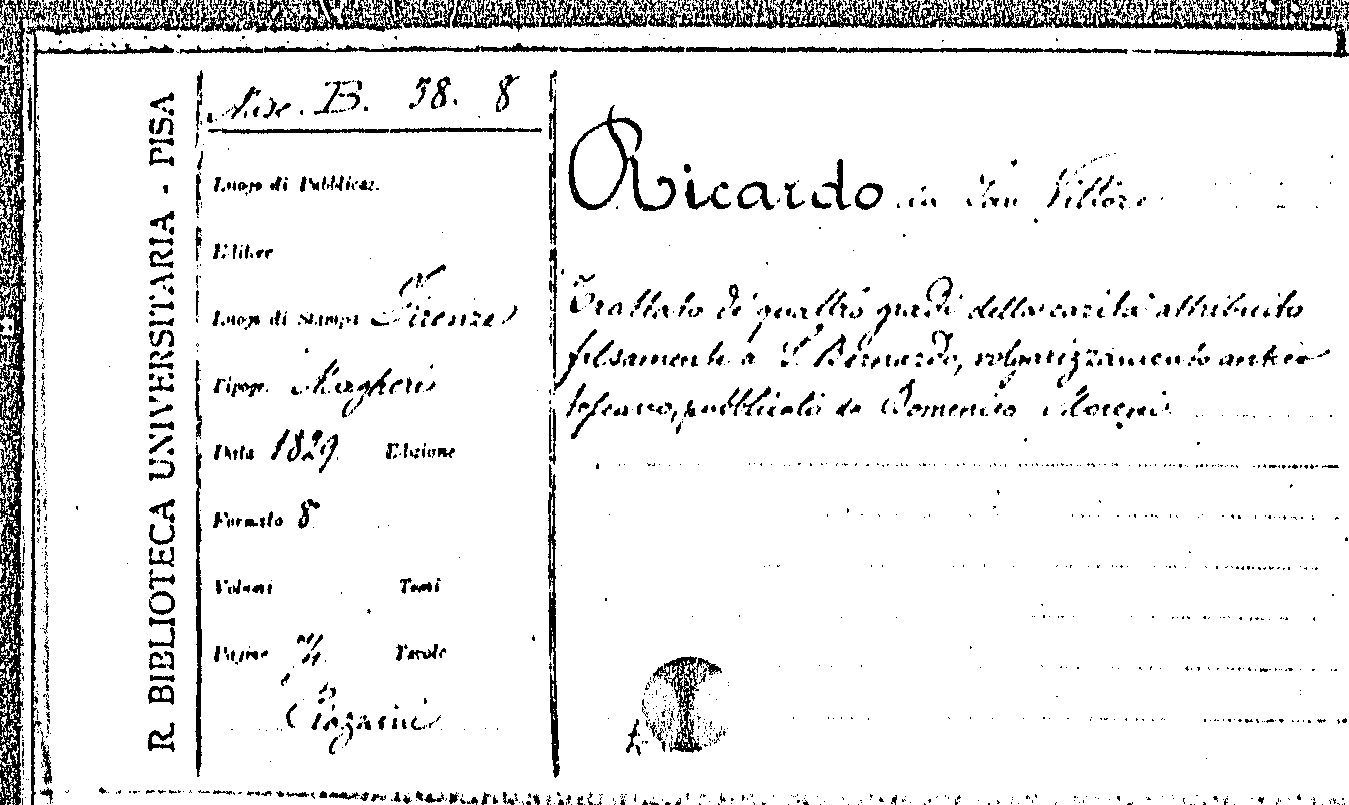 R. BIBLIOTECA UNIVERSITARIA - PISA
Misc. B. 38. 8
Luogo di Pubblicaz.
Editore
Luogo di Stampa Firenze
Tipogr. Magheri
Data 1829. Edizione
Formato 8
Volumi Tomi
Pagine 74. Tavole
Ricardo da San Vittore
Trattato di quattro gradi della carità attribuito
falsamente a S. Bernardo, volgarizzamento antico
toscano, pubblicato da Domenico Moreni